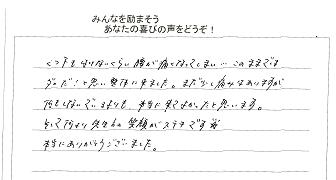 みんなを励まそう
あなたの喜びの声をどうぞ！
くつ下もはけないくらい腰が痛くなってしまい… このままでは
ダメだ！と思い整体に来ました。まだ少し痛みはありますが
何もしないでいるよりも、本当に来てよかったと思います。
そして何より先生の笑顔がステキです
本当にありがとうございました。